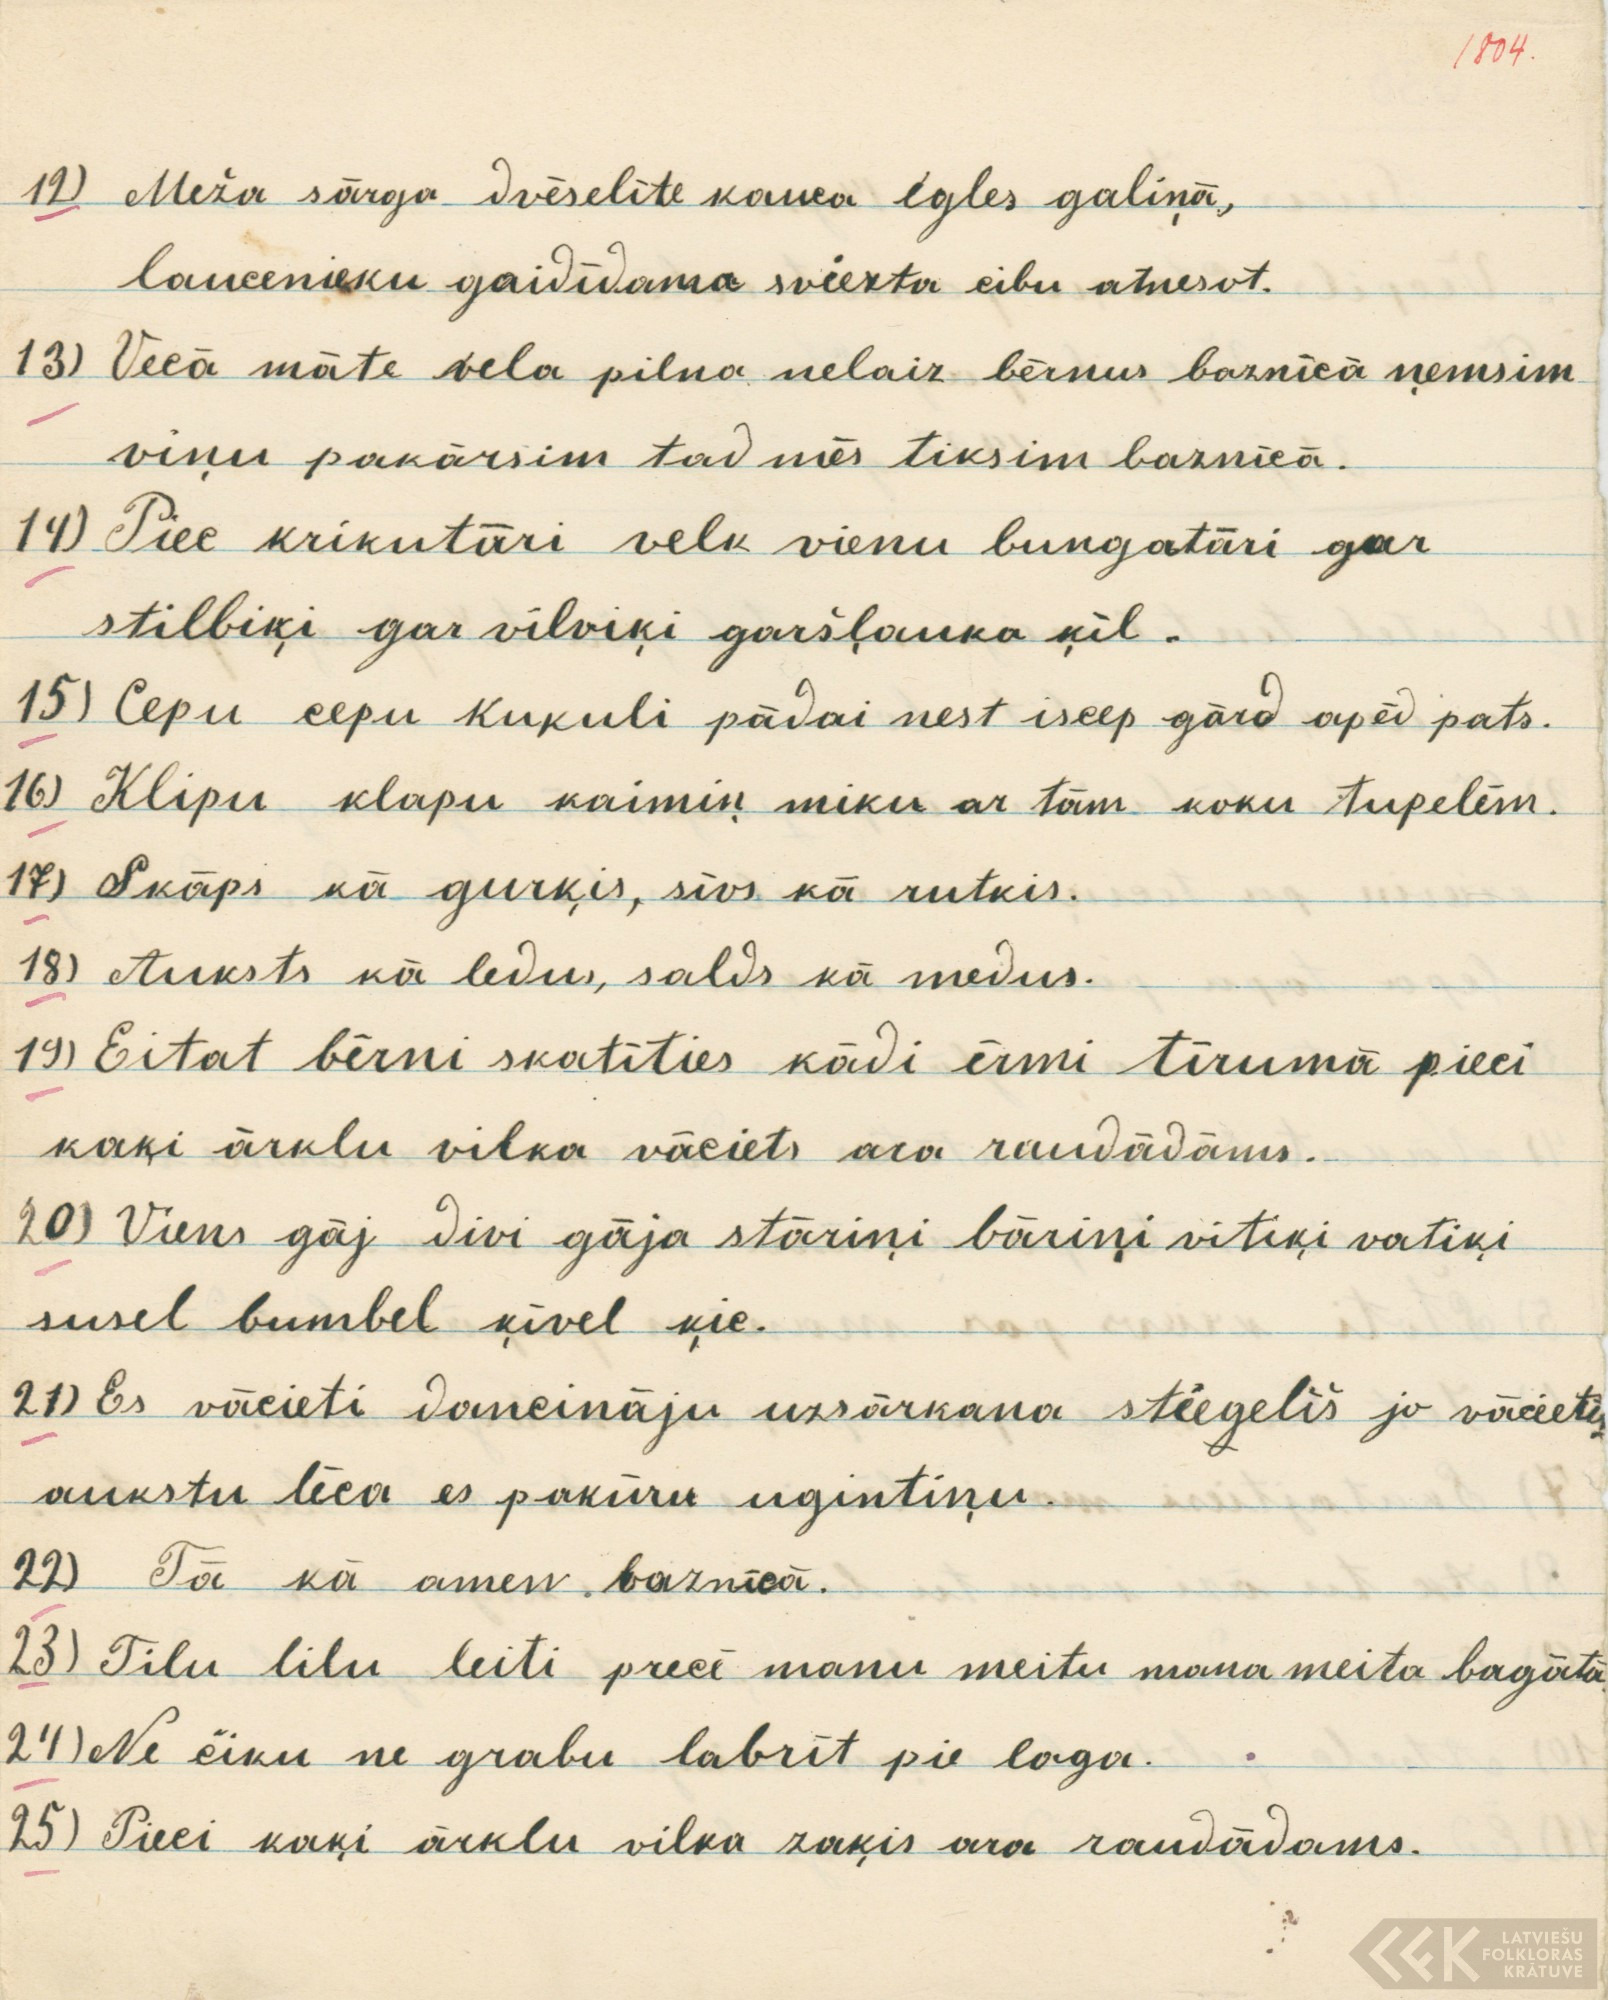 1804.
12) Meža sārga dvēselīte kauca egles galiņā,
laucenieku gaidīdama sviezta cibu atnesot.
13) Vecā māte vela pilna nelaiz bērnus baznīcā ņemsim
viņu pakārsim tad mēs tiksim baznīcā.
14) Piec krikutāri velk vienu bungatāri gar
stilbiķi gar vilviķi garšļauka ķīl.
15) Cepu cepu kukuli pādai nest iscep gārd apēd pats.
16) Klipu klapu kaimiņ miku ar tām koku tupelēm.
17) Skāps kā gurķis, sīvs kā rutkis.
18) Auksts kā ledus, salds kā medus.
19) Eitat bērni skatīties kādi ērmi tīrumā pieci
kaķi ārklu vilka vāciets ara raudādāms.
20) Viens gāj divi gāja stāriņi bāriņi vitiķi vatiķi
susel bumbel ķivel ķic.
21) Es vācieti dancināju uzsārkana stiegelīš jo vācietis
aukstu lēca es pakūru ugintiņu.
22) Tā kā amen baznīcā.
23) Tilu lilu leiti precē manu meitu mana meita bagāta.
24) Ne čiku ne grabu labrīt pie loga.
25) Pieci kaķi ārklu vilka zaķis ara raudādams.
LATVIEŠU
FOLKLORAS
KRĀTUVE